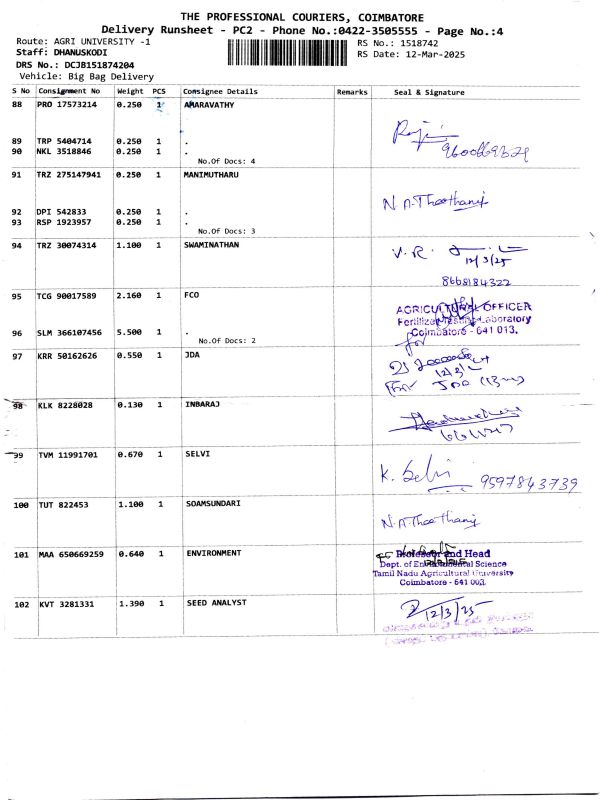 THE PROFESSIONAL COURIERS, COIMBATORE
Delivery Runsheet - PC2 - Phone No.:0422-3505555 - Page No.:4
Route: AGRI UNIVERSITY -1
RS No.: 1518742
Staff: DHANUSKODI
RS Date: 12-Mar-2025
DRS No.: DCJB151874204
Vehicle: Big Bag Delivery
S No Consignment No Weight PCS Consignee Details Remarks Seal & Signature
88 PRO 17573214 0.250 1 AMARAVATHY
89 TRP 5404714 0.250 1 .
90 NKL 3518846 0.250 1 .
No.Of Docs: 4
91 TRZ 275147941 0.250 1 MANIMUTHARU
N.A.Theethanji
92 DPI 542833 0.250 1 .
93 RSP 1923957 0.250 1 .
No.Of Docs: 3
94 TRZ 30074314 1.100 1 SWAMINATHAN
V.R.
12/3/25
8668184322
95 TCG 90017589 2.160 1 FCO
AGRICULTURAL OFFICER
Fertilizer Testing Laboratory
Coimbatore - 641 013.
for
96 SLM 366107456 5.500 1 .
No.Of Docs: 2
97 KRR 50162626 0.550 1 JDA
98 KLK 8228028 0.130 1 INBARAJ
99 TVM 11991701 0.670 1 SELVI
K. Selvi 9597843739
100 TUT 822453 1.100 1 SOAMSUNDARI
N.A.Theethanji
101 MAA 650669259 0.640 1 ENVIRONMENT
Professor and Head
Dept. of Environmental Science
Tamil Nadu Agricultural University
Coimbatore - 641 003.
102 KVT 3281331 1.390 1 SEED ANALYST
12/3/25